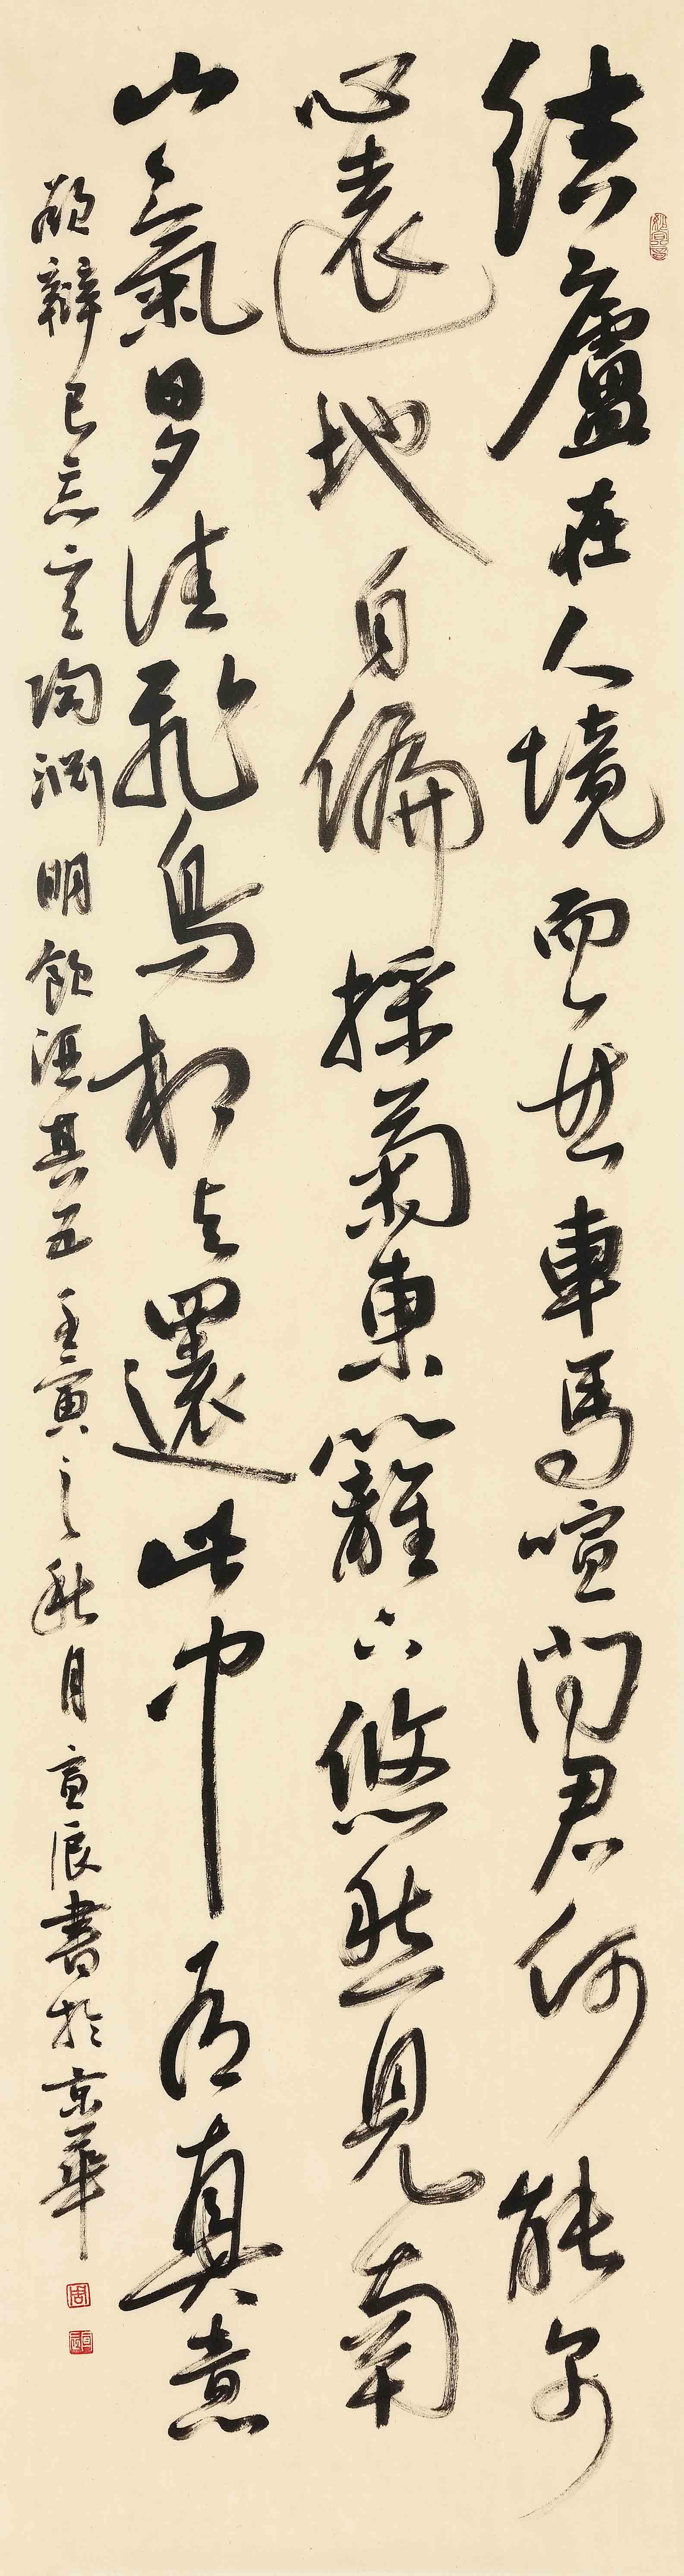 結廬在人境而無車馬喧問君何能尔
心遠地自偏採菊東籬下悠然見南
山氣日夕佳飛鳥相與還此中有真意
欲辯已忘言陶淵明飲酒其五壬寅之秋月宣辰書於京華